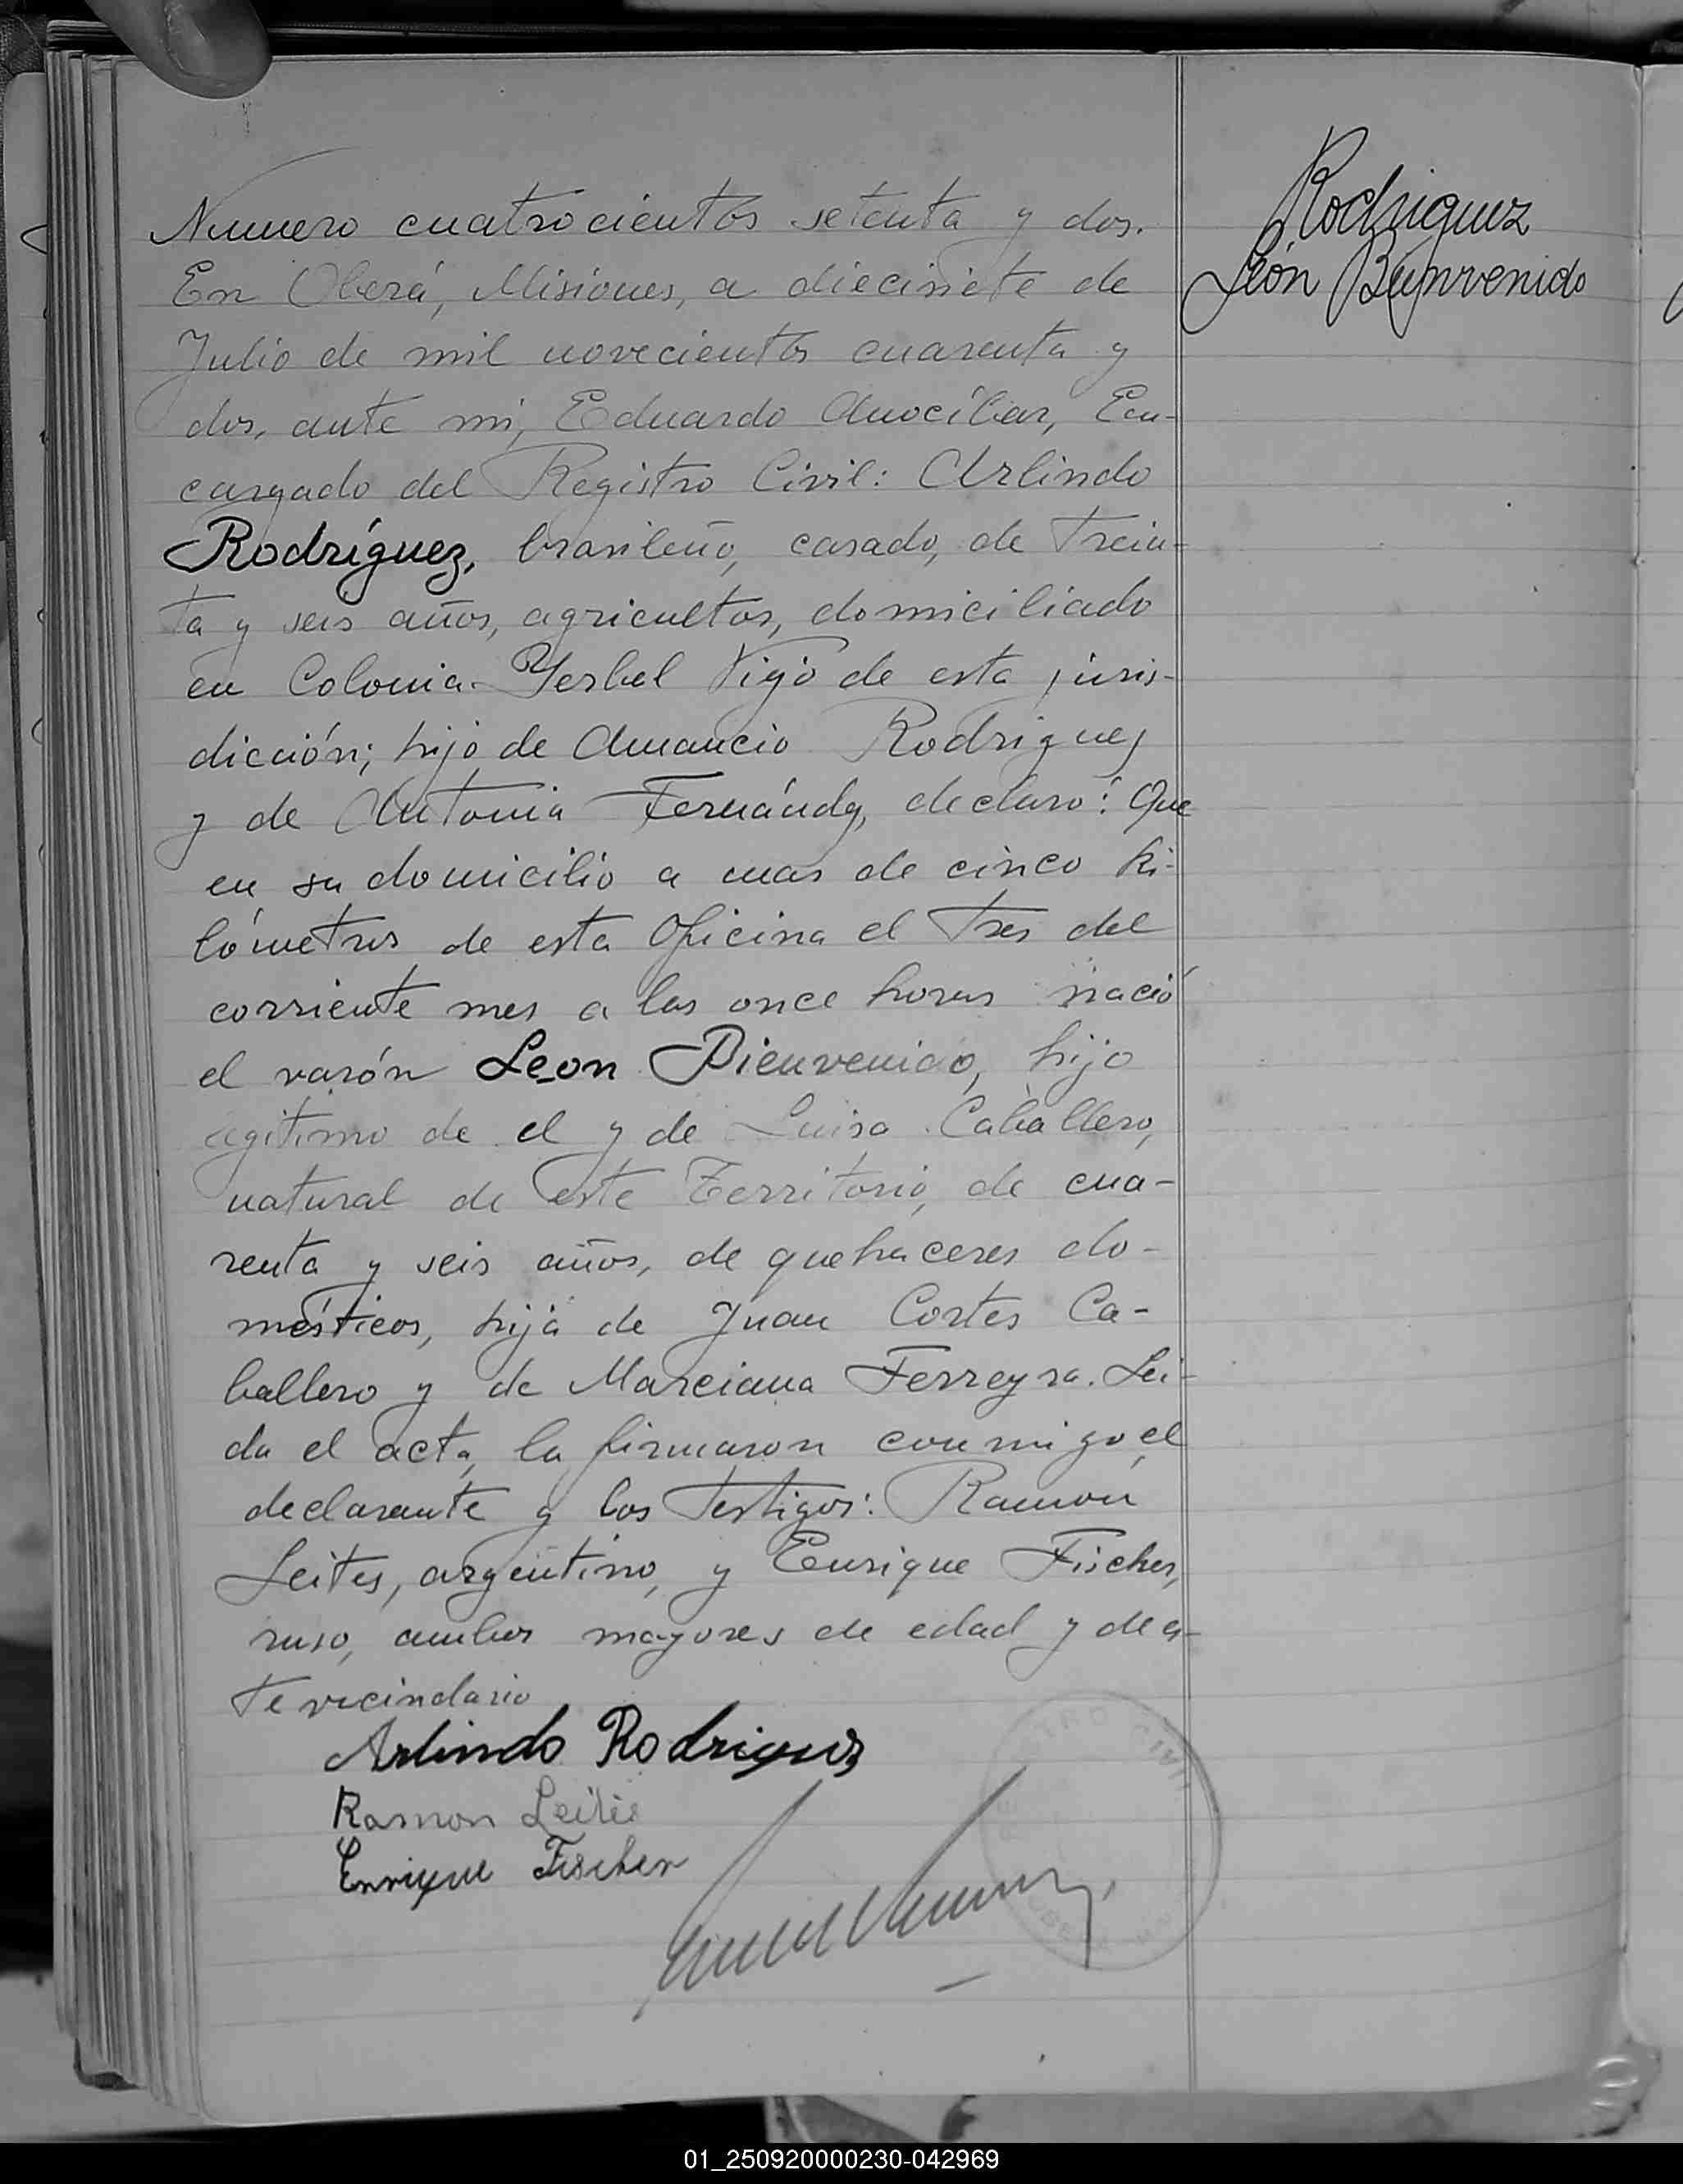 Numero cuatrocientos setenta y dos.
En Oberá, Misiones, a diecisiete de
Julio de mil novecientos cuarenta y
dos, ante mi, Eduardo Anocíbar, En-
cargado del Registro Civil: Arlindo
Rodríguez, brasileño, casado, de trein-
ta y seis años, agricultor, domiciliado
en Colonia Yerbal Vigo de esta juris-
dicción; hijo de Amancio Rodriguez
y de Antonia Fernández, declaró: Que
en su domicilio a mas de cinco ki-
lómetros de esta Oficina el tres del
corriente mes a las once horas nació
el varón Leon Bienvenido, hijo
legitimo de el y de Luisa Caballero,
natural de este Territorio, de cua-
renta y seis años, de quehaceres do-
mésticos, hija de Juan Cortes Ca-
ballero y de Marciana Ferreyra. Lei-
da el acta, la firmaron conmigo, el
declarante y los testigos: Ramón
Leites, argentino, y Enrique Fischer,
ruso, ambos mayores de edad y de es-
te vecindario
Arlindo Rodriguez
Ramon Leites
Enrique Fischer
Rodriguez
León Bienvenido
01_250920000230-042969